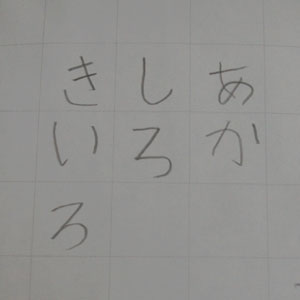 あか
しろ
きいろ